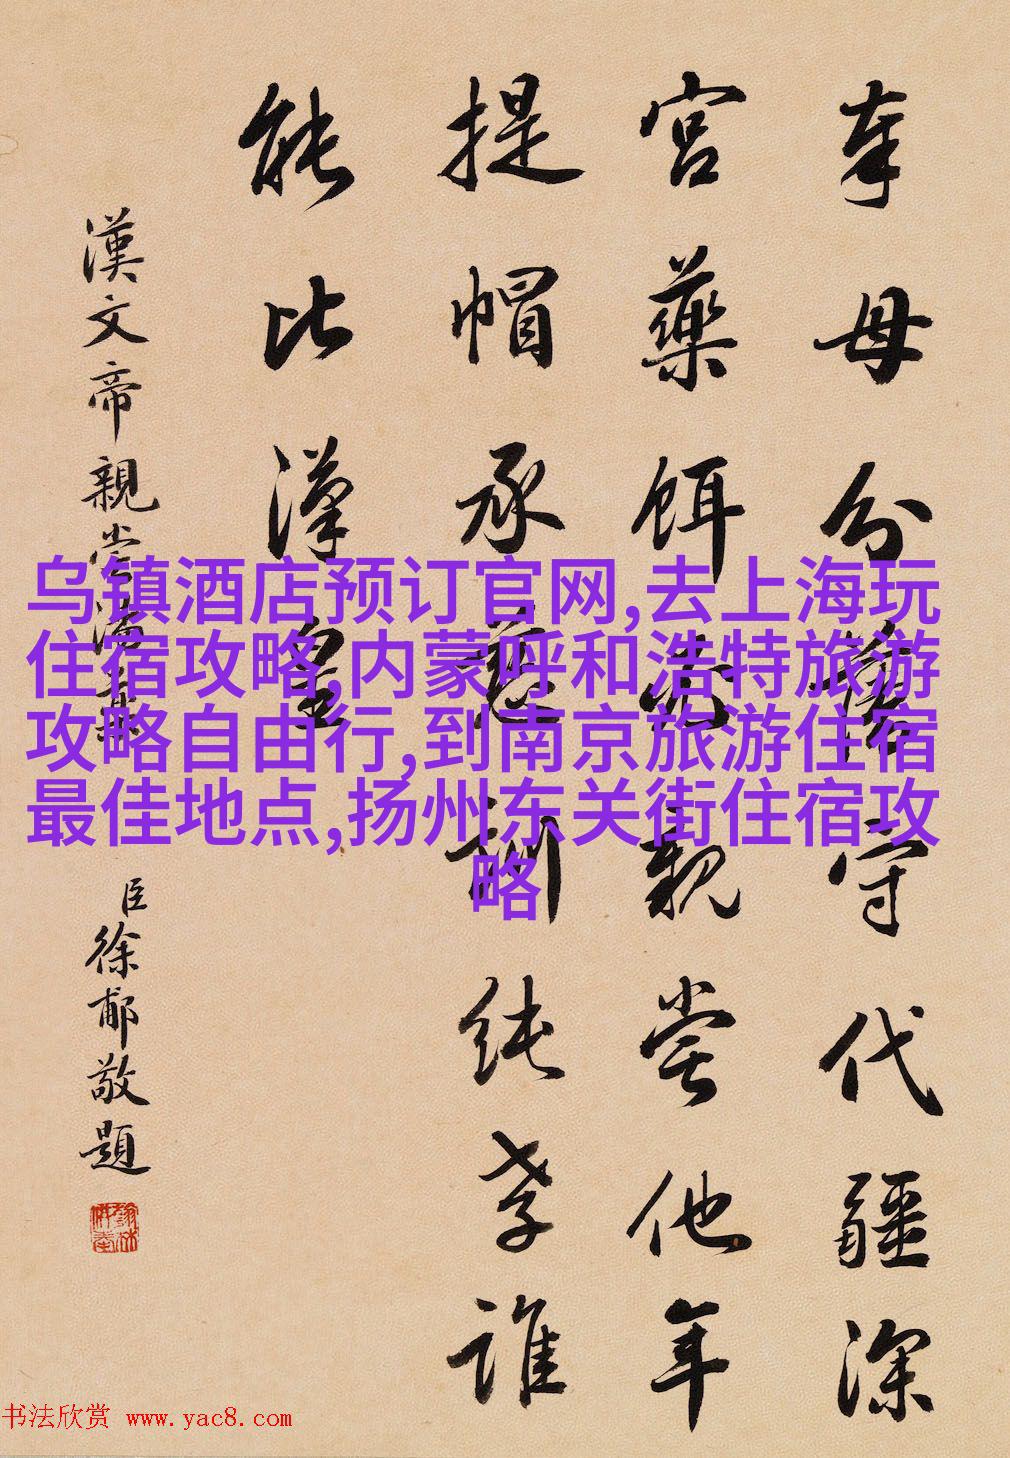 奉母分藩守代疆深
宮藥餌親嘗他年
提帽承慈訓純孝誰
能比漢皇
漢文帝親嘗湯藥
臣徐郙敬題
乌镇酒店预订官网,去上海玩
住宿攻略,内蒙呼和浩特旅游
攻略自由行,到南京旅游住宿
最佳地点,扬州东关街住宿攻
略
书法欣赏 www.yac8.com